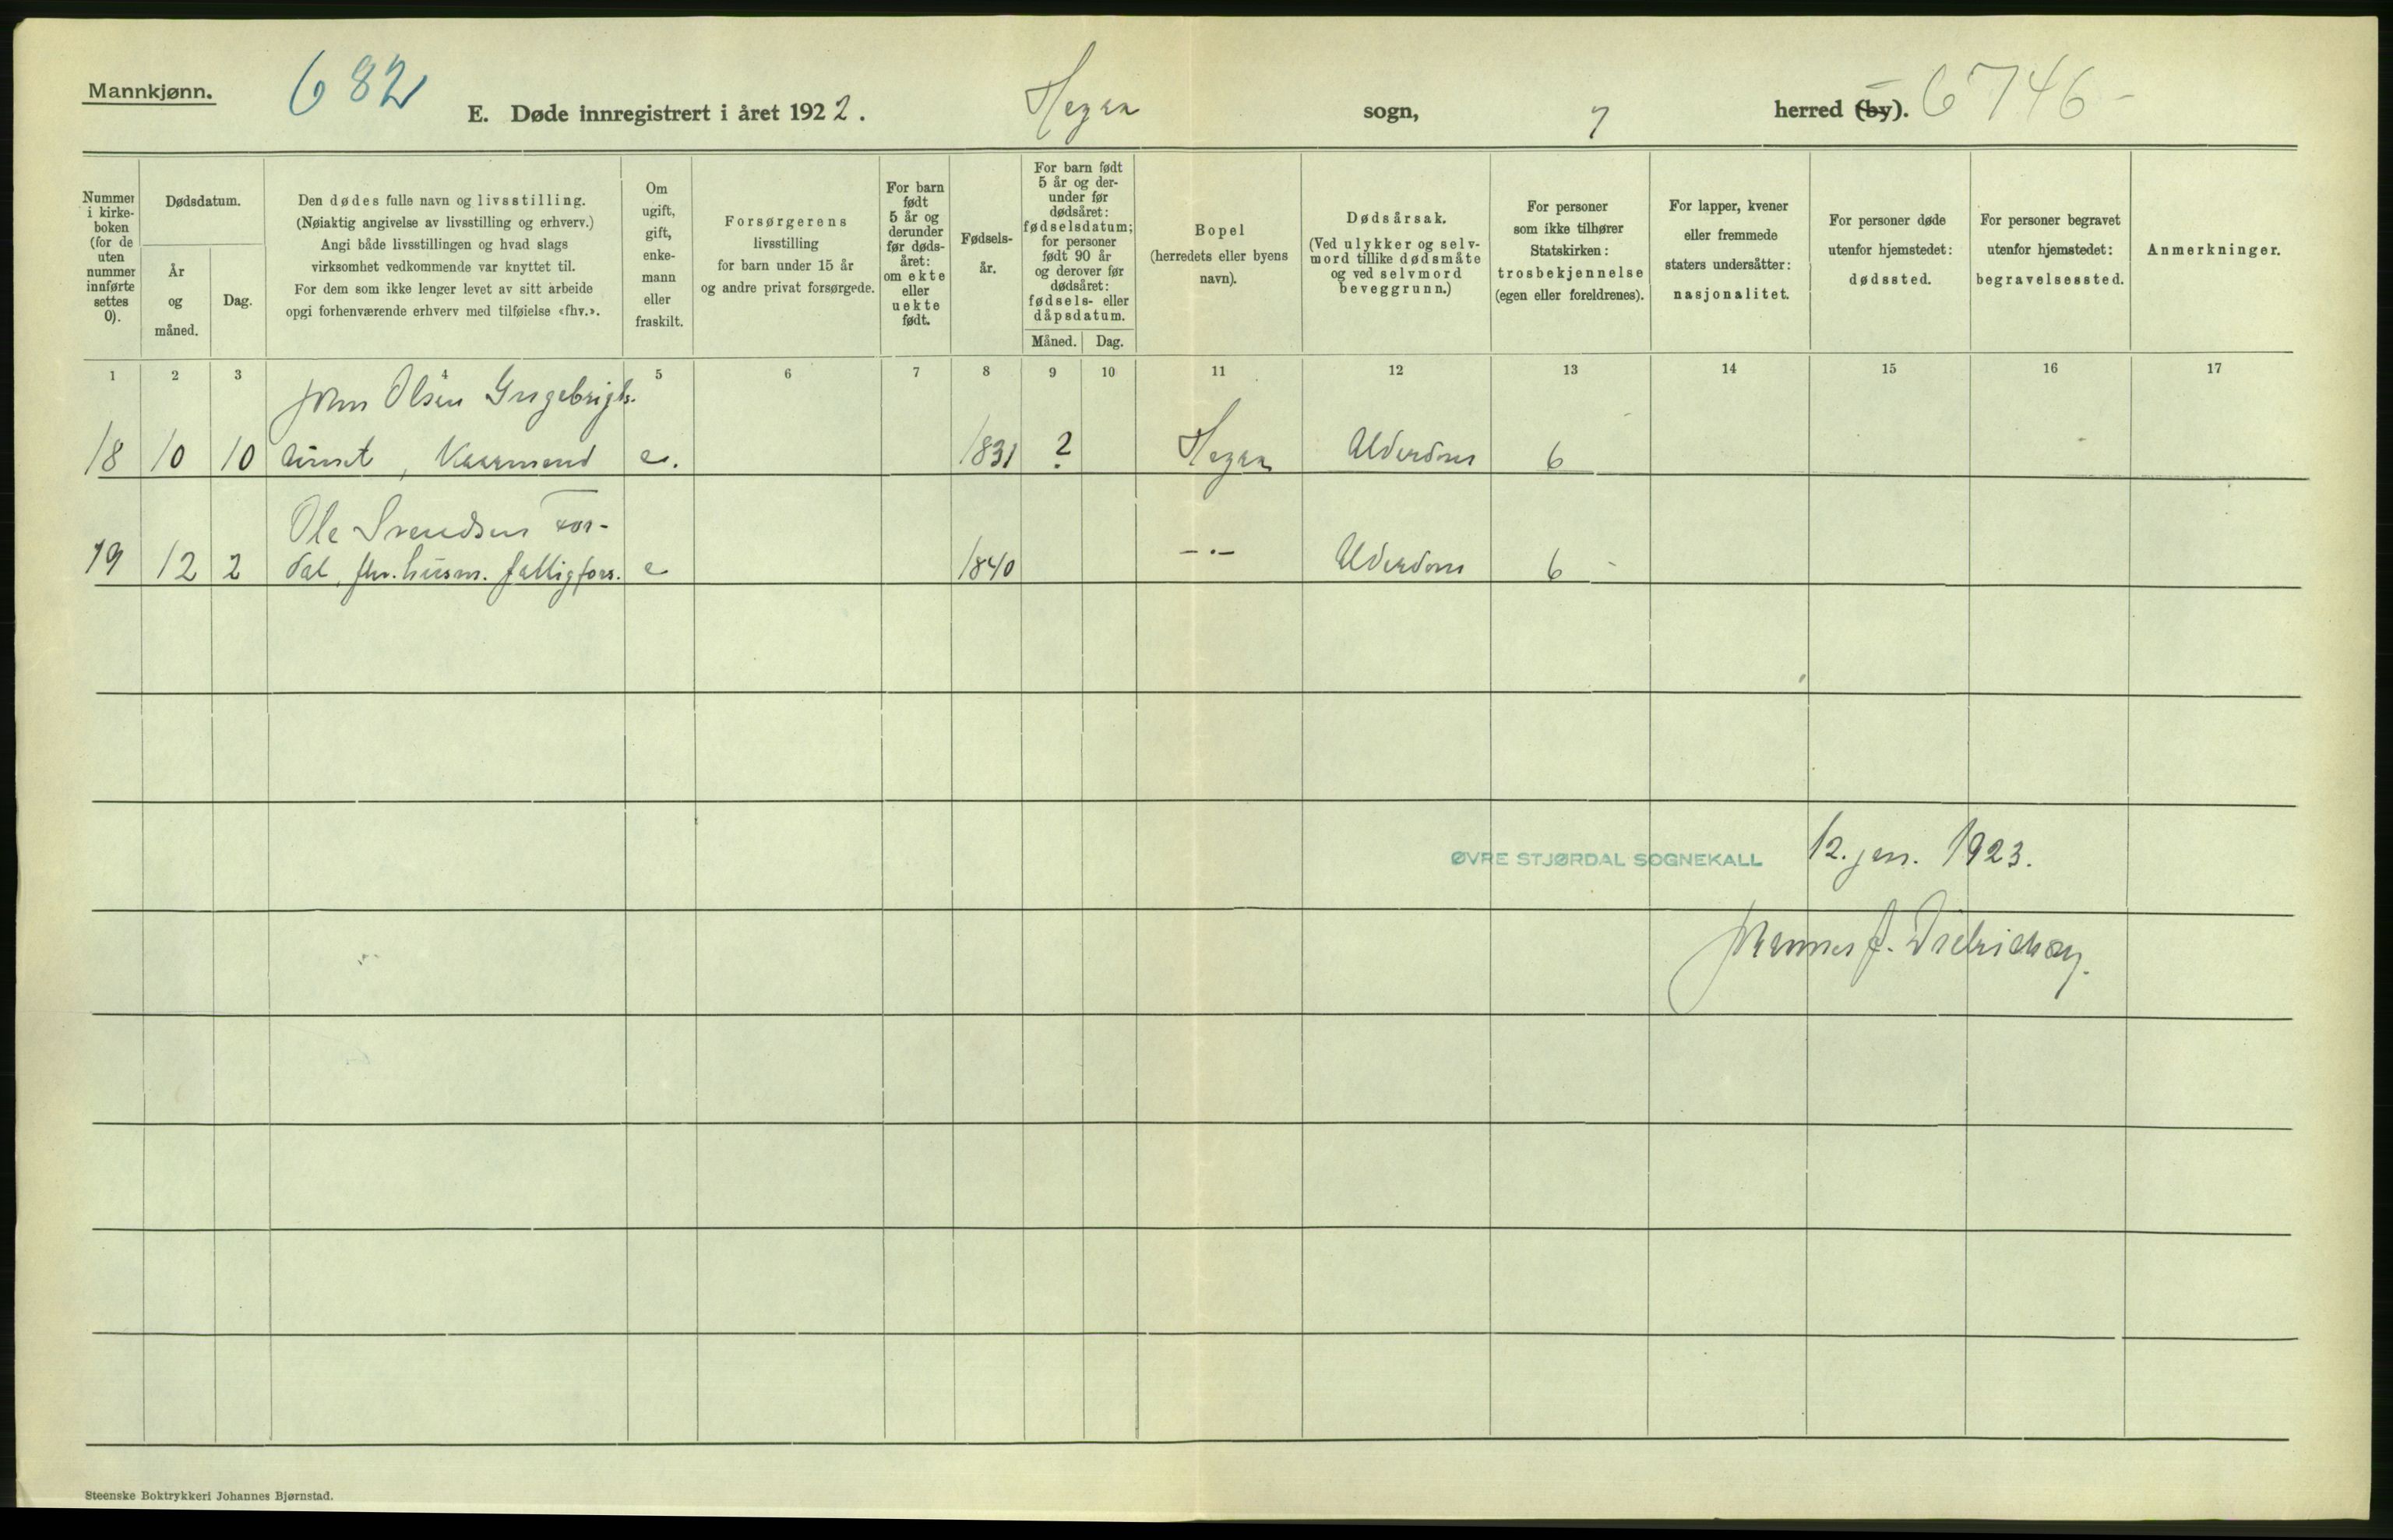 Mannkjønn.
682
E. Døde innregistrert i året 1922. Hegra sogn, herred (by). 6746-
Nummer i kirke- boken (for de uten nummer innførte settes 0).
Dødsdatum.
År og måned.
Dag.
Den dødes fulle navn og livsstilling.
(Nøiaktig angivelse av livsstilling og erhverv.)
Angi både livsstillingen og hvad slags
virksomhet vedkommende var knyttet til.
For dem som ikke lenger levet av sitt arbeide
opgi forhenværende erhverv med tilføielse «fhv.».
Om ugift, gift, enke- mann eller fraskilt.
Forsørgerens
livsstilling
for barn under 15 år
og andre privat forsørgede.
For barn født 5 år og derunder før døds- året: om ekte eller uekte født.
Fødsels- år.
For barn født 5 år og der- under før dødsåret: fødselsdatum; for personer født 90 år og derover før dødsåret: fødsels- eller dåpsdatum.
Måned. Dag.
Bopel
(herredets eller byens
navn).
Dødsårsak.
(Ved ulykker og selv-
mord tillike dødsmåte
og ved selvmord
beveggrunn.)
For personer
som ikke tilhører
Statskirken:
trosbekjennelse
(egen eller foreldrenes).
For lapper, kvener
eller fremmede
staters undersåtter:
nasjonalitet.
For personer døde
utenfor hjemstedet:
dødssted.
For personer begravet
utenfor hjemstedet:
begravelsessted.
Anmerkninger.
1 2 3 4 5 6 7 8 9 10 11 12 13 14 15 16 17
John Olsen Ingebrigts-
18 10 10 aunet, Kaarmand e. 1831 ? Hegra Alderdom 6
Ole Svendsen For-
19 12 2 dal, fhv. husm. fattigfors. e 1840 -·- Alderdom 6
ØVRE STJØRDAL SOGNEKALL 12. jan. 1923.
Steenske Boktrykkeri Johannes Bjørnstad.